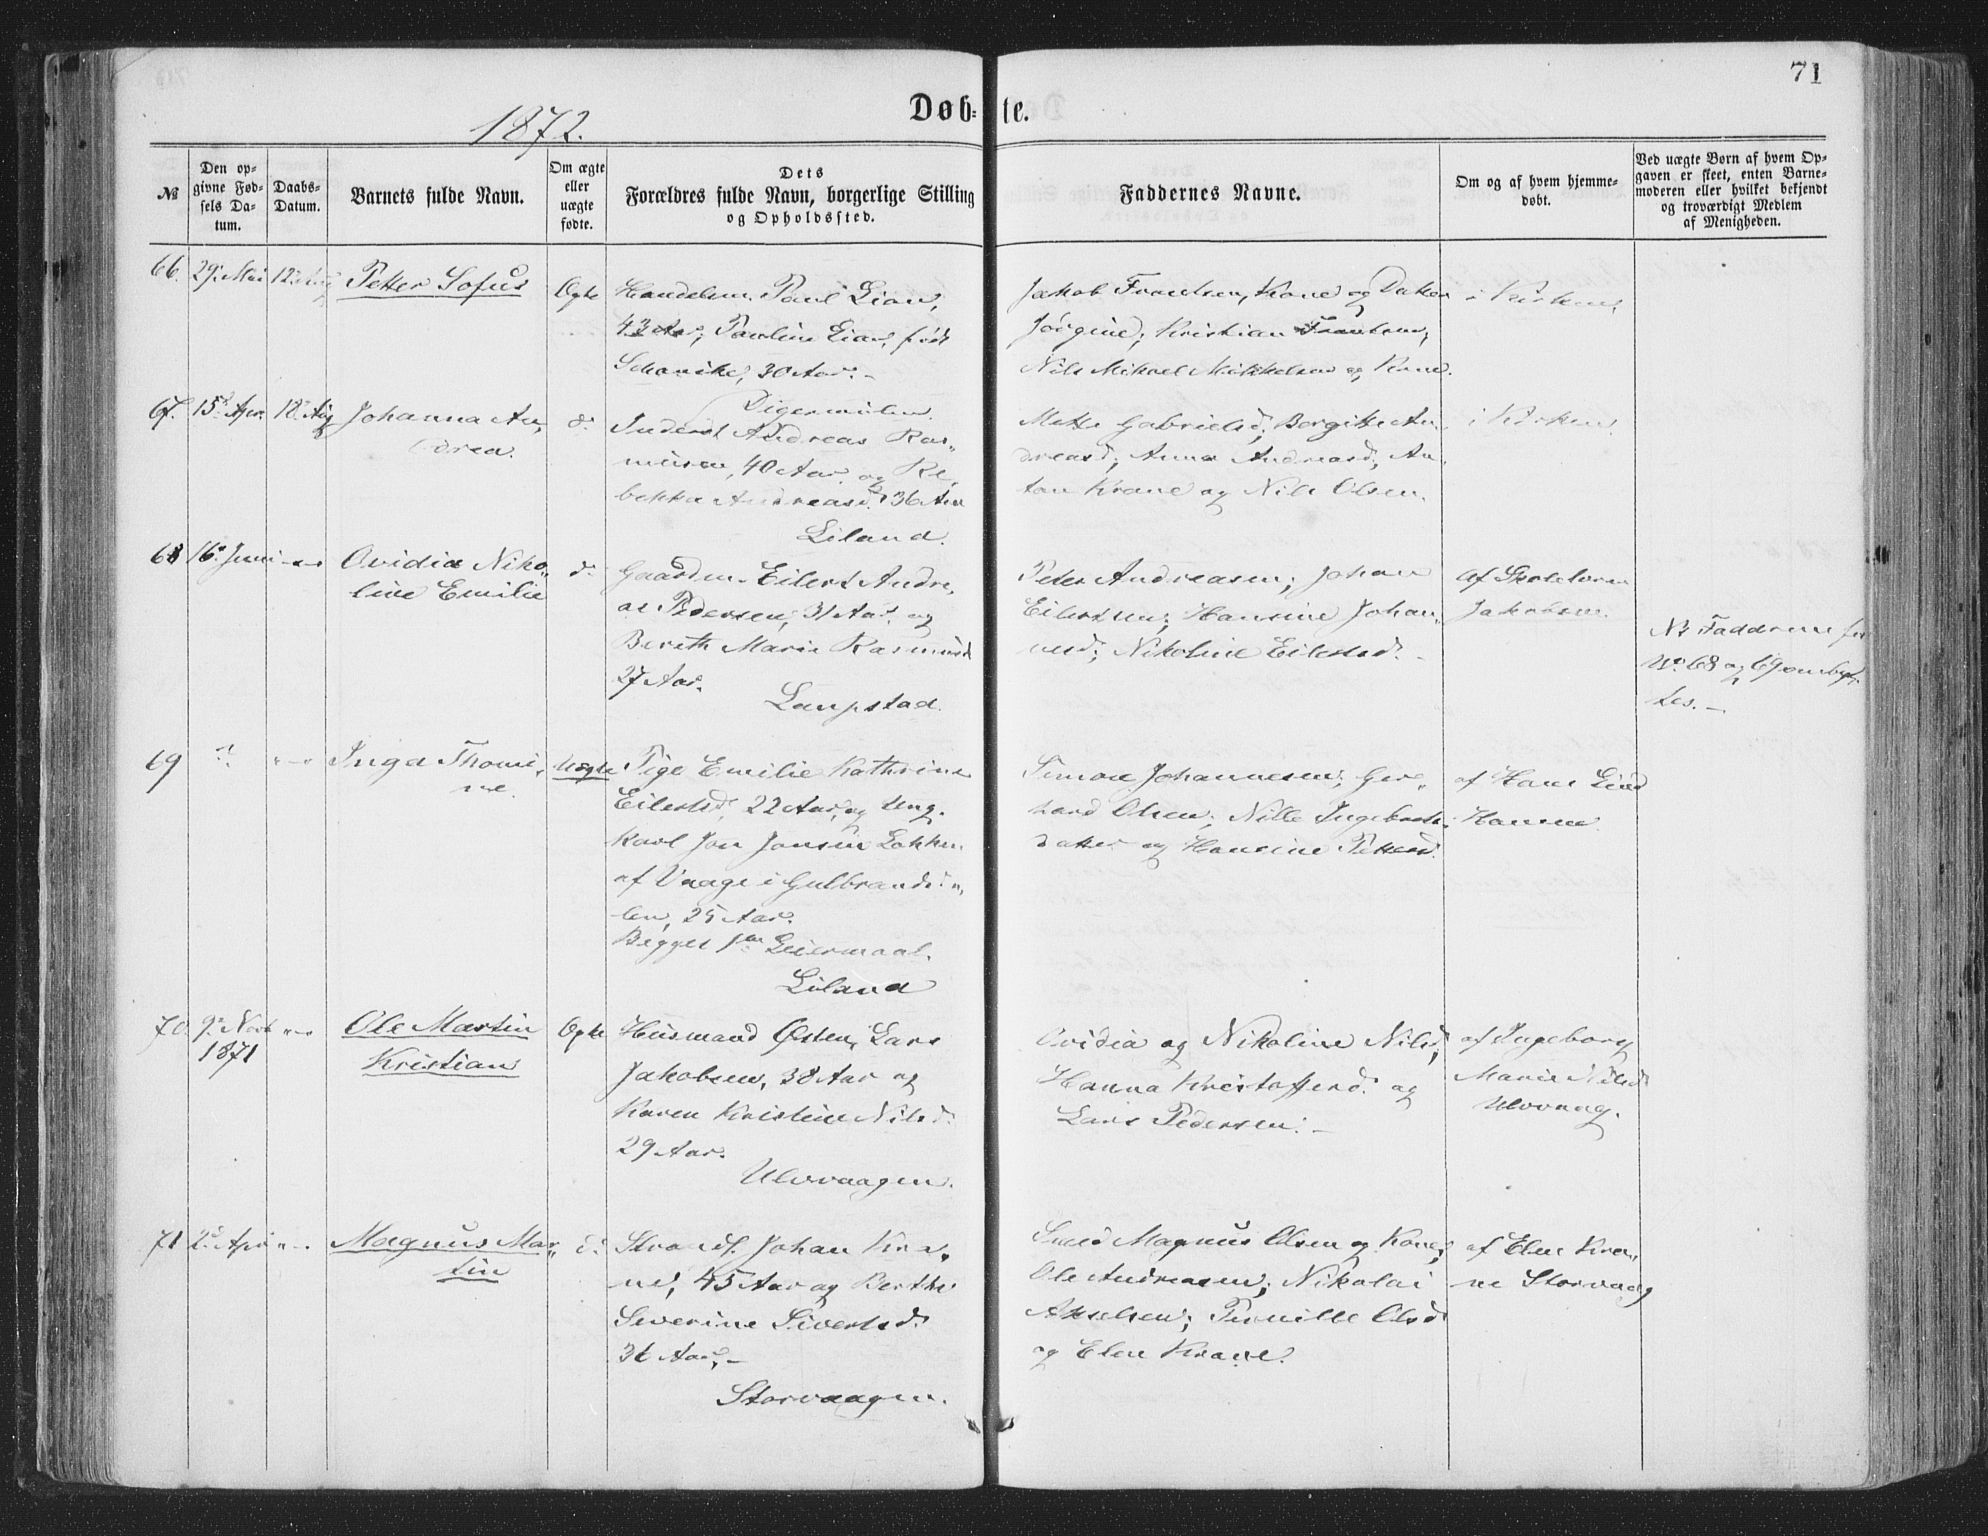 71
1872.
Døb-te.
№
Den op-
givne Fød-
sels Da-
tum.
Daabs-
Datum.
Barnets fulde Navn.
Om ægte
eller
uægte
fødte.
Dets
Forældres fulde Navn, borgerlige Stilling
og Opholdssted.
Faddernes Navne.
Om og af hvem hjemme-
døbt.
Ved uægte Børn af hvem Op-
gaven er skeet, enten Barne-
moderen eller hvilket bekjendt
og troværdigt Medlem
af Menigheden.
66. 29. Mai 12. Aug Petter Sofus Ægte
Handelsm. Paul Lian,
43 Aar, Pauline Lian, født
30 Aar. -
Digermulen.
Jakob Frantsen, Kone og Datter
Jørgine; Kristian Frantsen;
Nils Mikael Mikkelsen og Kone.
i Kirken.
67. 15. Apr. 18. Aug Johanna An-
drea. d.
Inderst Andreas Ras-
musen, 40 Aar og Re-
bekka Andreasd. 36 Aar
Liland.
Mette Gabrielsd; Bergitte An-
dreasd; Anna Andreasd; An-
ton Krane og Nils Olsen.
i Kirken.
68 16. Juni -"- Ovidia Niko-
line Emilie d.
Gaardm. Eilert Andre-
as Pedersen, 31 Aar, og
Bereth Marie Rasmusd
27 Aar.
Laupstad.
Peter Andreasen; Johan
Eilertsen; Hansine Johan-
nesd; Nikoline Eilertsd. -
af Skolelærer
Jakobsen.
NB Fadderne for
No. 68 og 69 ombyt-
tes. -
69 ? -"- Inga Thomi-
ne. Uægte
Pige Emilie Kathrine
Eilertsd, 22 Aar, og Ung.
Karl Jon Jonsen Løkken
af Vaage i Gulbrandsda-
len, 25 Aar.
Begges 1ste Leiermaal.
Liland
Simon Johannesen; Ger-
hard Olsen; Nille Ingebrets-
datter og Hansine Pettersd.
af Hans Lind
Hamm
70. 9. Novb -"-
1871
Ole Martin
Kristian
Ægte
Husmand Østen Lars
Jakobsen, 38 Aar og
Karen Kristine Nilsd.
29 Aar.
Ulvvaagen.
Ovidia og Nikoline Nilsd;
Hanna Kristoffersd. og
Lars Pedersen. -
af Ingeborg
Marie Nilsd
Ulvvaag.
71 2. April -"- Magnus Mar-
tin d.
Strands. Johan Kra-
ne, 45 Aar og Berthe
Severine Sivertsd.
36 Aar, -
Storvaagen.
Smed Magnus Olsen og Kone;
Ole Andreasen; Nikolai
Akselsen; Pernille Olsd
og Elen Krane.
af Elen Kra-
ne Storvaag